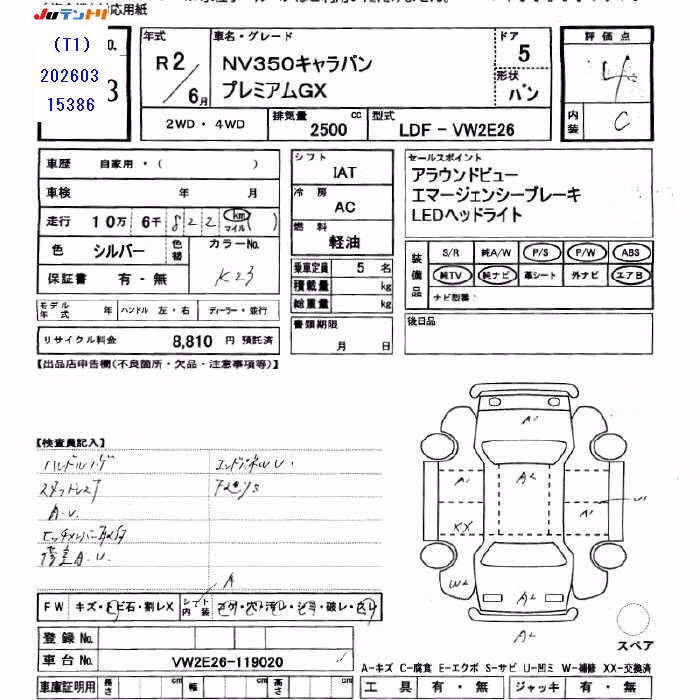 対応用紙
Juテントリ
(T1)
202603
15386
No.
3
年式
R2/6月
車名・グレード
NV350キャラバン
プレミアムGX
ドア
5
形状
バン
評価点
4
内装
C
2WD・4WD
排気量
2500
cc
型式
LDF-VW2E26
車歴 自家用・( )
車検 年 月
走行 10万 6千 822 (km マイル)
色 シルバー
色替
カラーNo.
K23
保証書 有・無
モデル年式 年 ハンドル 左・右 ディーラー・並行
リサイクル料金 8,810 円 預託済
シフト
IAT
冷房
AC
燃料
軽油
乗車定員 5 名
積載量 kg
総重量 kg
書類期限
月 日
セールスポイント
アラウンドビュー
エマージェンシーブレーキ
LEDヘッドライト
装備品
S/R 純A/W P/S P/W ABS
純TV 純ナビ 革シート 外ナビ エアB
ナビ型番:
後日品
【出品店申告欄(不良箇所・欠品・注意事項等)】
【検査員記入】
ハンドルハゲ
エンドパネルU.
A.U.
A
FW キズ・トビ石・割レX
シート内装
コゲ・穴・汚レ・シミ・破レ・スレ
登録No.
車台No. VW2E26-119020
車庫証明用 長さ cm 幅 cm 高さ cm
A1
A1
A2
A1
U1
XX
W2
A2
A2
スペア
A-キズ C-腐食 E-エクボ S-サビ U-凹ミ W-補修 XX-交換済
工具 有・無 ジャッキ 有・無